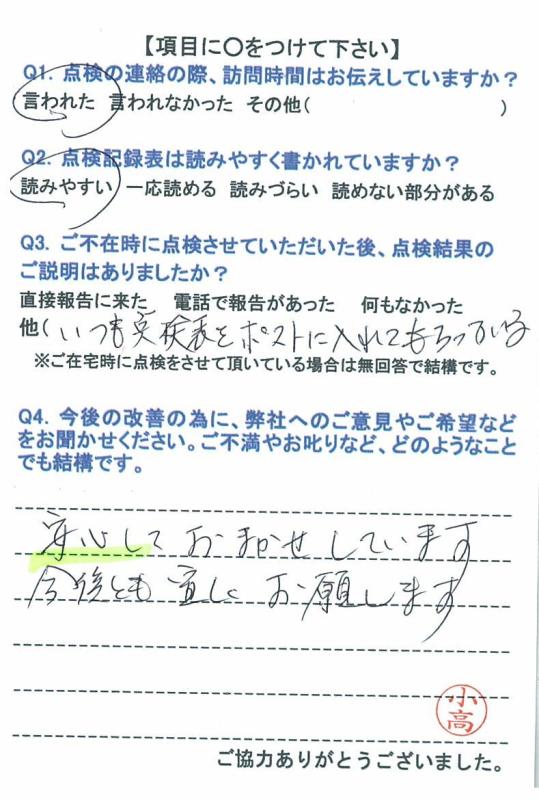 【項目に〇をつけて下さい】
Q1. 点検の連絡の際、訪問時間はお伝えしていますか？
言われた 言われなかった その他( )
Q2. 点検記録表は読みやすく書かれていますか？
読みやすい 一応読める 読みづらい 読めない部分がある
Q3. ご不在時に点検させていただいた後、点検結果の
ご説明はありましたか？
直接報告に来た 電話で報告があった 何もなかった
他(いつも点検表をポストに入れてもらっている
※ご在宅時に点検をさせて頂いている場合は無回答で結構です。
Q4. 今後の改善の為に、弊社へのご意見やご希望など
をお聞かせください。ご不満やお叱りなど、どのようなこと
でも結構です。
安心しておまかせしています
今後とも宜しくお願いします
小高
ご協力ありがとうございました。